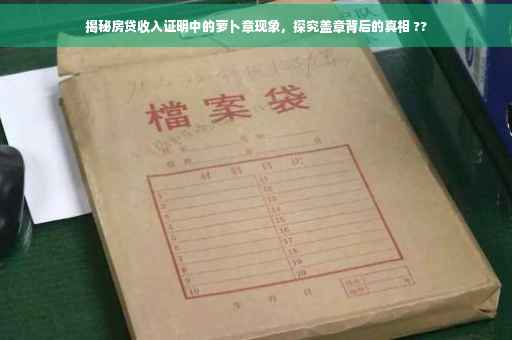 揭秘房贷收入证明中的萝卜章现象，探究盖章背后的真相 ??
檔案袋
材料目次
1 11
2 12
3 13
4 14
5 15
6 16
7 17
8 18
9 19
10 20
年 月 日